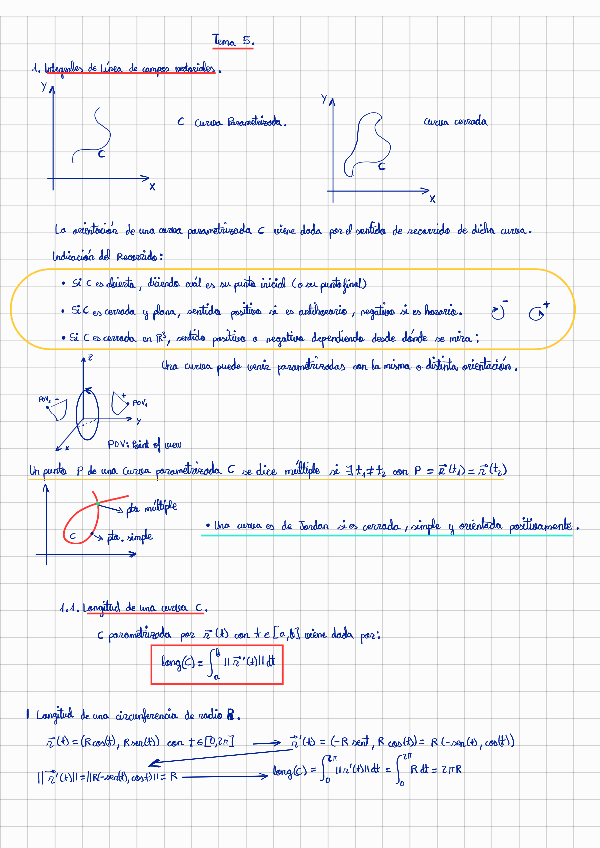 Tema 5.
1. Integrales de línea de campos vectoriales.
Y
C
X
C curva Parametrizada.
Y
C
X
curva cerrada
La orientación de una curva parametrizada C viene dada por el sentido de recorrido de dicha curva.
Indicación del Recorrido:
• Si C es abierta, diciendo cuál es su punto inicial (o su punto final)
• Si C es cerrada y plana, sentido positivo si es antihorario, negativo si es horario. - +
• Si C es cerrada en R³, sentido positivo o negativo dependiendo desde dónde se mira:
Una curva puede venir parametrizadas con la misma o distinta orientación.
z
POV₁ - + POV₂
y
x
POV: Point of view
Un punto P de una curva parametrizada C se dice múltiple si ∃ t₁ ≠ t₂ con P = r⃗(t₁) = r⃗(t₂)
pto múltiple
C pto. simple
• Una curva es de Jordan si es cerrada, simple y orientada positivamente.
1.1. Longitud de una curva C.
C parametrizada por r⃗(t) con t ∈ [a,b] viene dada por:
long(C) = ∫_a^b ||r⃗'(t)|| dt
| Longitud de una circunferencia de radio R.
r⃗(t) = (R cos(t), R sen(t)) con t ∈ [0,2π] → r⃗'(t) = (-R sent, R cos(t)) = R(-sen(t), cos(t))
||r⃗'(t)|| = ||R(-sen(t), cos t)|| = R → long(C) = ∫_0^2π ||r'(t)|| dt = ∫_0^2π R dt = 2πR